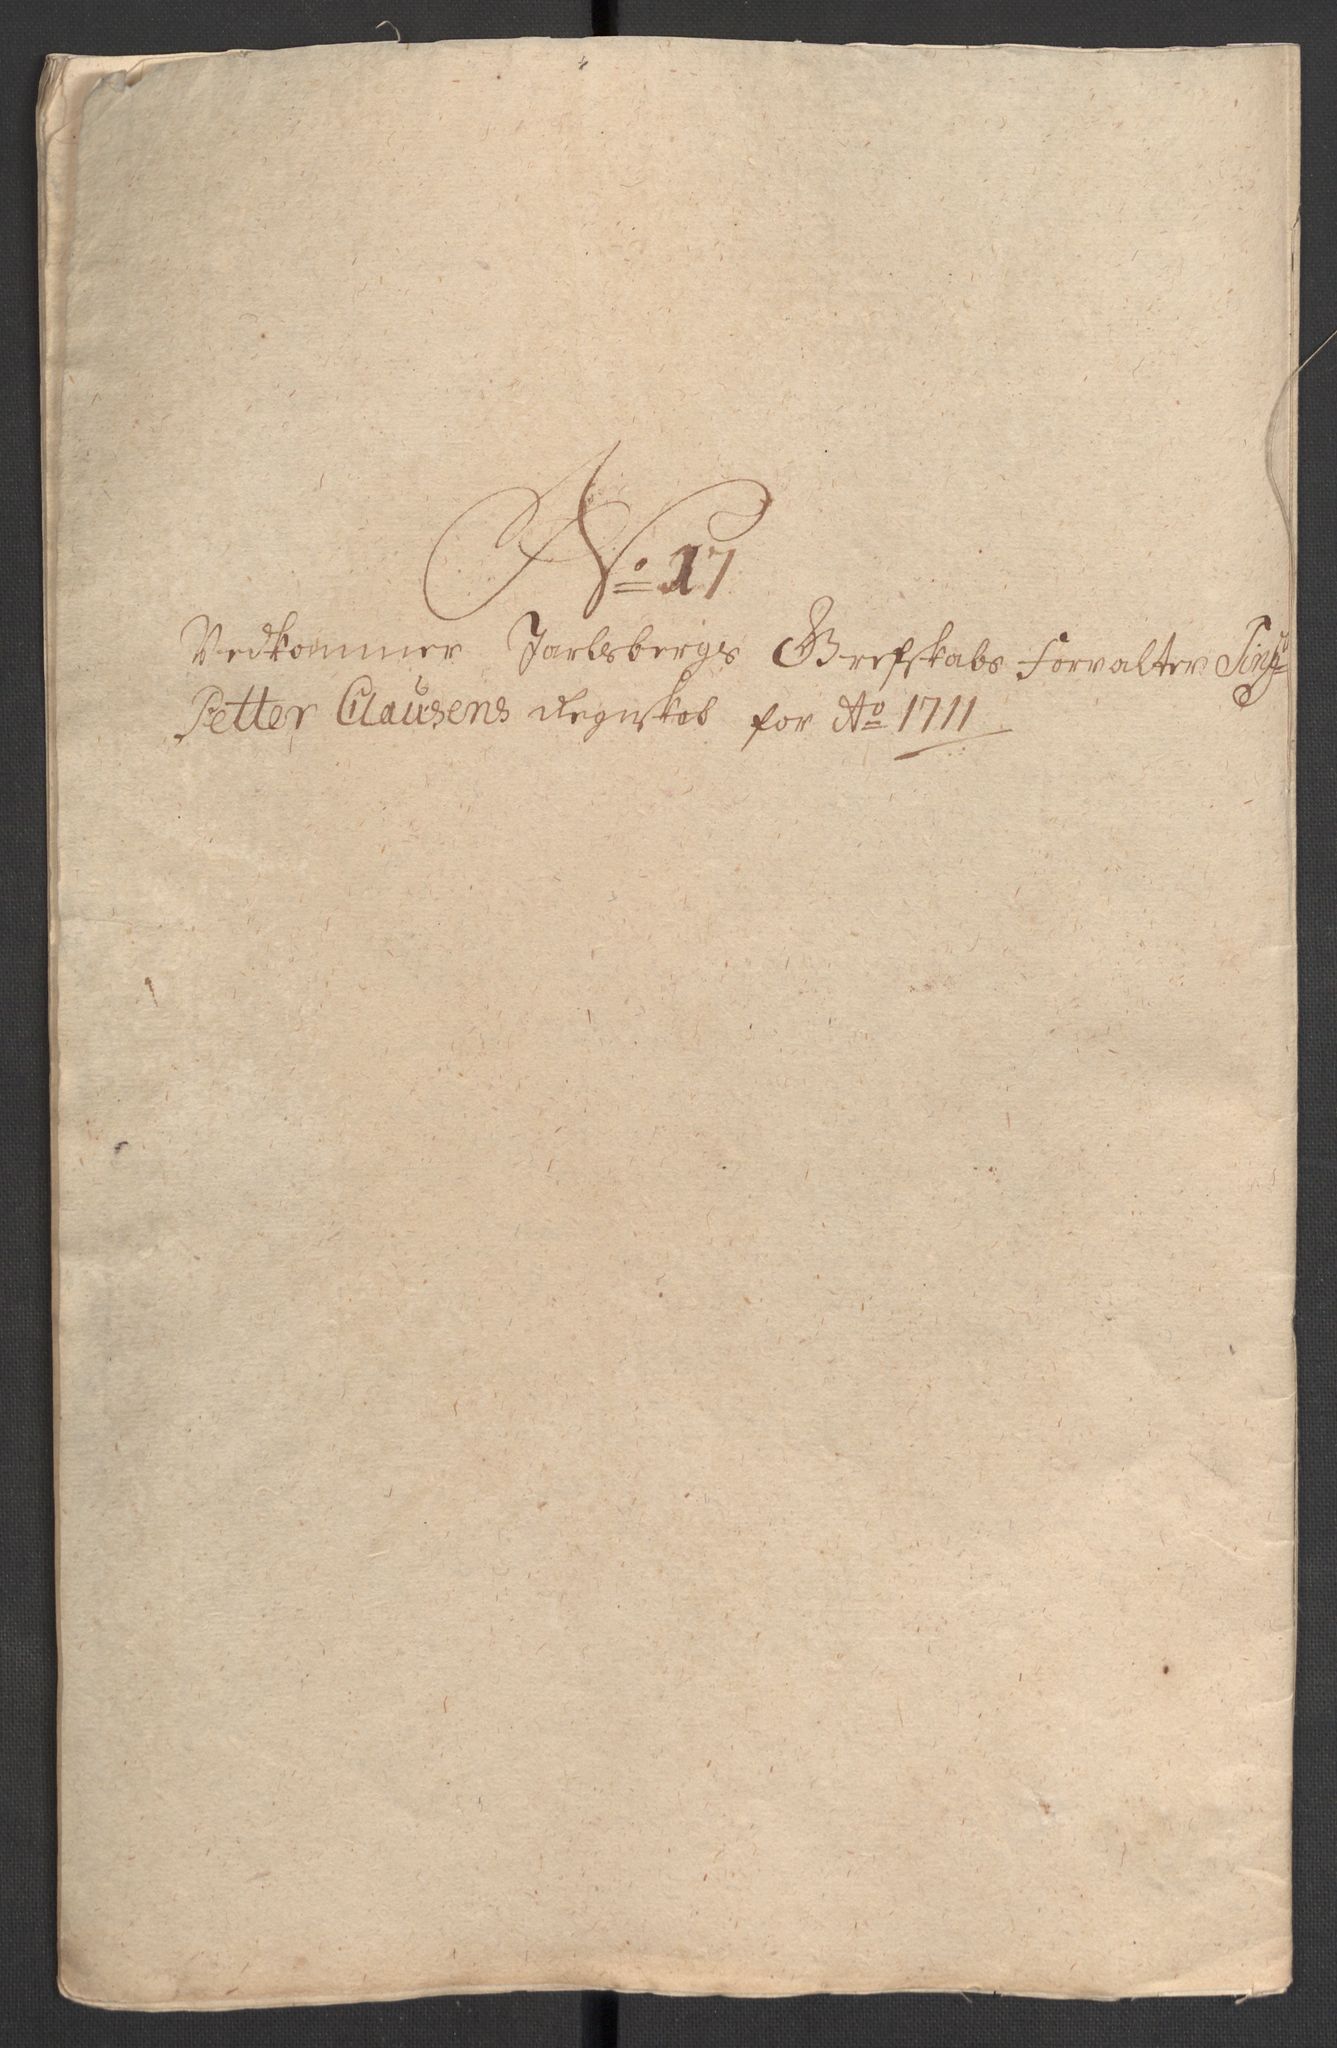 No 17
Vedkommer Jarlsbergs Grefskabs Forvalter Sinr
Petter Clausens Regnskab for Ao 1711